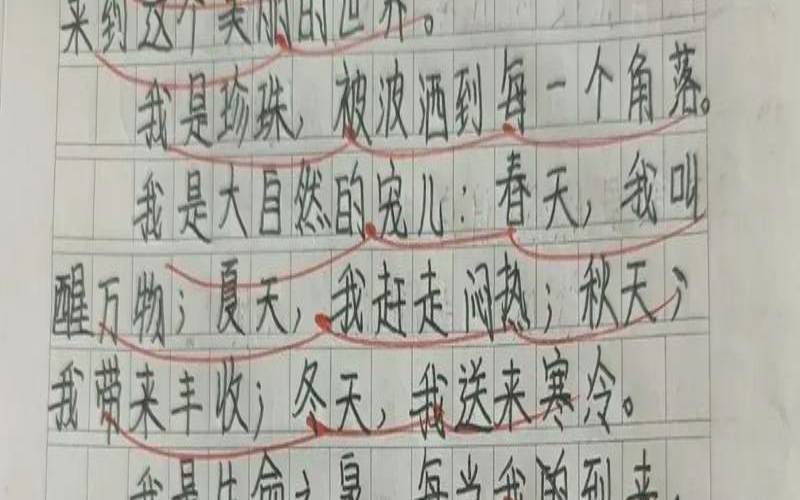 来到这个美丽的世界。
我是珍珠，被波洒到每一个角落。
我是大自然的宠儿：春天，我叫
醒万物；夏天，我赶走闷热；秋天；
我带来丰收；冬天，我送来寒冷。
我是生命之泉，每当我的到来，